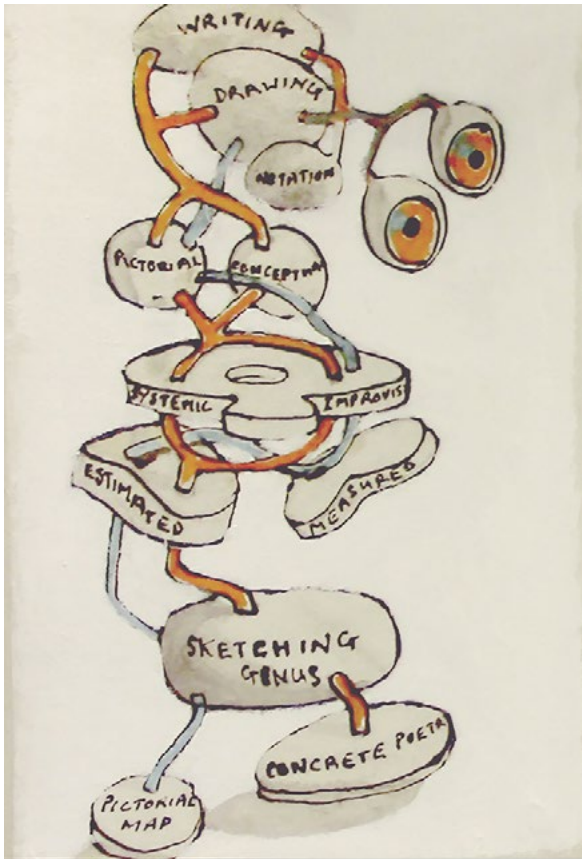 WRITING
DRAWING
NOTATION
PICTORIAL
CONCEPTUA
SYSTEMIC
IMPROVIS
ESTIMATED
MEASURED
SKETCHING
GENUS
CONCRETE POETR
PICTORIAL
MAP